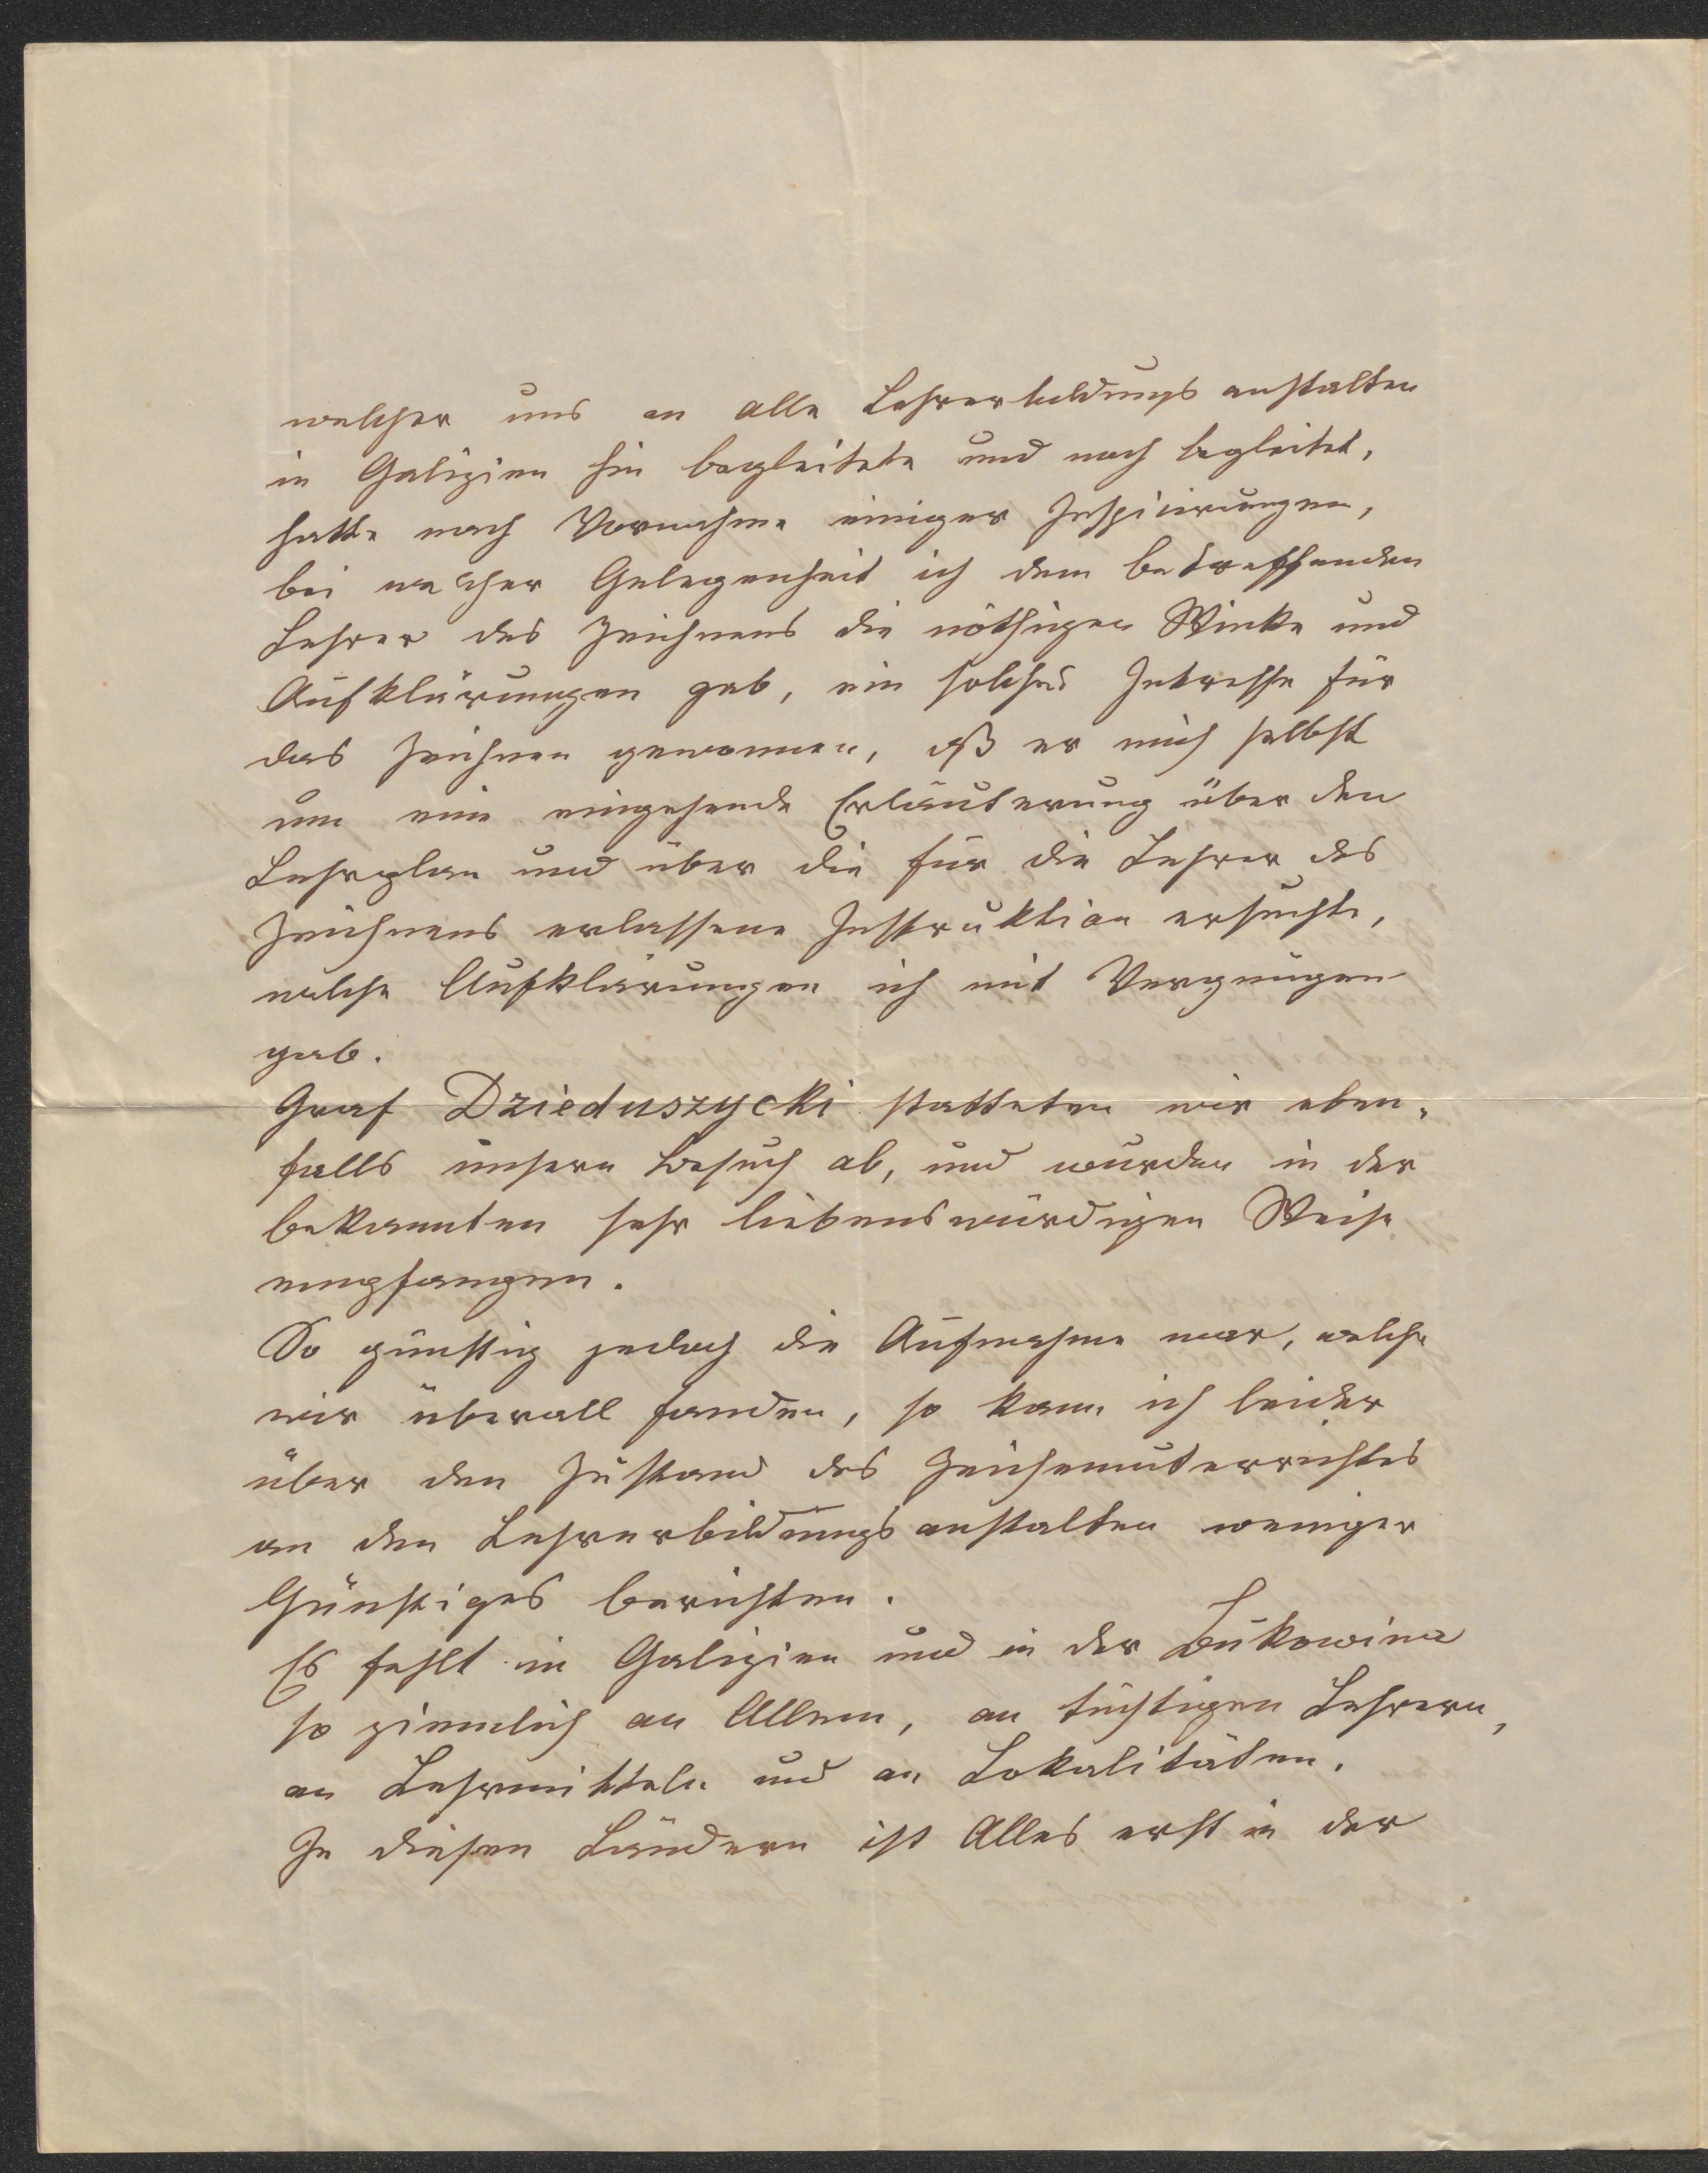 welcher uns an alle Lehrerbildungsanstalten
in Galizien hin begleitete und noch begleitet,
hatte nach Vornahme einiger Inspicirungen,
bei welcher Gelegenheit ich dem betreffenden
Lehrer des Zeichnens die nöthigen Winke und
Aufklärungen gab, ein solches Interesse für
das Zeichnen gewonnen, daß er mich selbst
um eine eingehende Erläuterung über den
Lehrplan und über die für die Lehrer des
Zeichnens erlassene Instruktion ersuchte,
welche Aufklärungen ich mit Vergnügen
gab.
Graf Dzieduszycki statteten wir eben-
falls unsern Besuch ab, und wurden in der
bekannten sehr liebenswürdigen Weise
empfangen.
So günstig jedoch die Aufnahme war, welche
wir überall fanden, so kann ich leider
über den Zustand des Zeichenunterrichtes
an den Lehrerbildungsanstalten weniger
Günstiges berichten.
Es fehlt in Galizien und in der Bukowina
so ziemlich an Allem, an tüchtigen Lehrern,
an Lehrmitteln und an Lokalitäten.
In diesen Ländern ist Alles erst in der